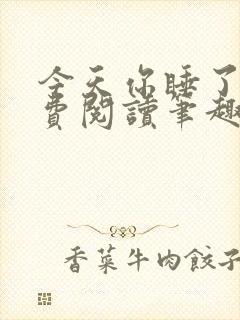 今天你睡了
費閱讀筆趣
香菜牛肉餃子